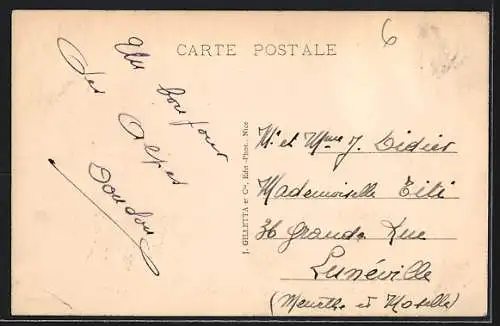 CARTE POSTALE
6
Un bonjour
des Alpes
Doudou
J. GILLETTA et Cie, Edit.-Phot., Nice
Mr et Mme J. Didier
Mademoiselle Titi
36 Grande Rue
Lunéville
(Meurthe et Moselle)